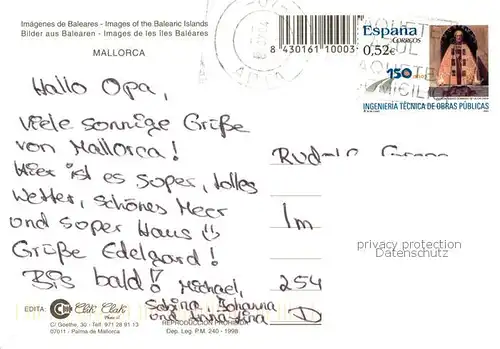 Imágenes de Baleares - Images of the Balearic Islands
Bilder aus Balearen - Images de les îles Baléares
MALLORCA
8 430161 10003
España
CORREOS
0,52€
150 años
INGENIERÍA TÉCNICA DE OBRAS PÚBLICAS
Hallo Opa,
viele sonnige Grüße
von Mallorca!
Hier ist es super, tolles
Wetter, schönes Meer
und super Haus
Grüße Edelgard!
Bis bald! Michael,
Sabina, Johanna
und Anna-Lina
Rudolf
Im
254
D
privacy protection
Datenschutz
EDITA: Clik Clak
C/ Goethe, 30 - Telf. 971 28 91 13
07011 - Palma de Mallorca
REPRODUCCIÓN PROHIBIDA
Dep. Leg. P.M. 240 - 1998